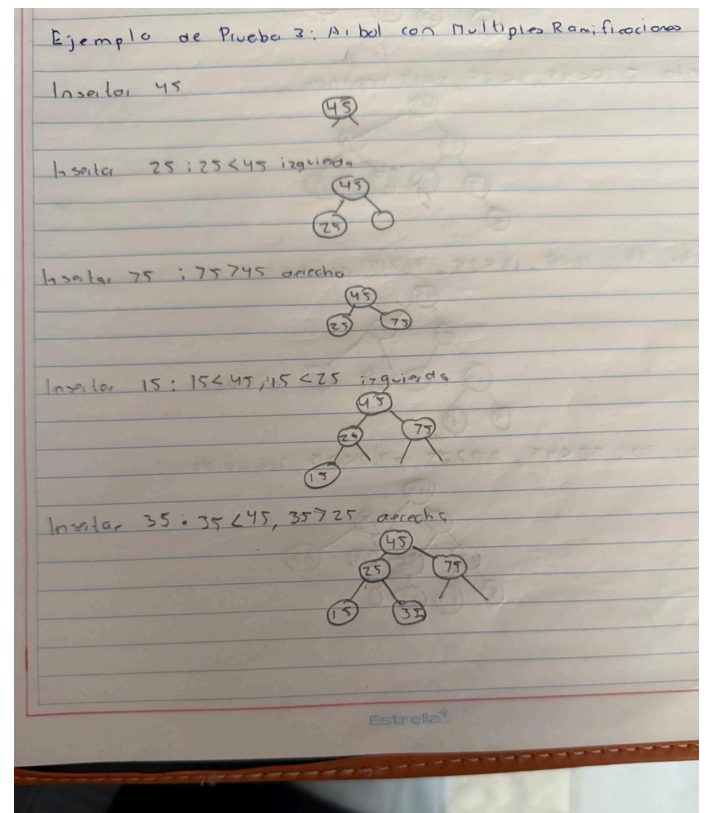 Ejemplo de Prueba 3: Arbol con Multiples Ramificaciones
Insertar 45
45
Insertar 25 : 25 < 45 izquierda
45
25
Insertar 75 : 75 > 45 derecha
45
25 75
Insertar 15 : 15 < 45, 15 < 25 izquierda
45
25 75
15
Insertar 35 : 35 < 45, 35 > 25 derecha
45
25 75
15 35
Estrella